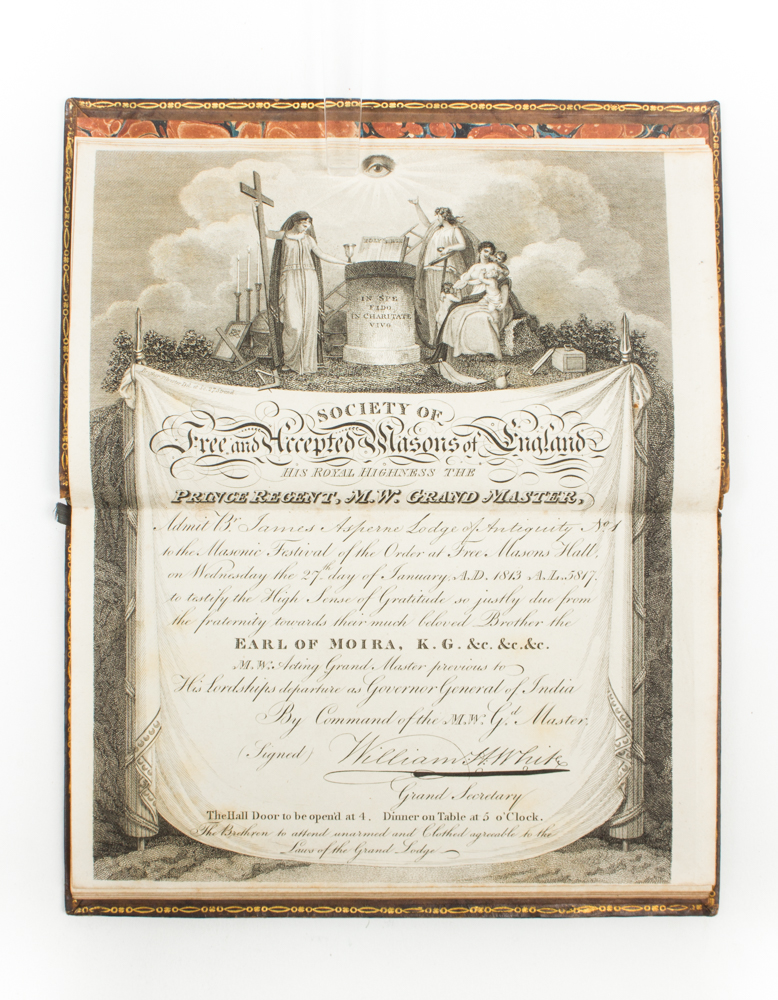 HOLY BIBLE
IN SPE
VIDO
IN CHARITATE
VIVO
SOCIETY OF
Free and Accepted Masons of England
HIS ROYAL HIGHNESS THE
PRINCE REGENT, M.W. GRAND MASTER,
Admit Br. James Asperne Lodge of Antiquity No. 1
to the Masonic Festival of the Order at Free Masons Hall,
on Wednesday the 27th day of January A.D. 1813 A.L. 5817.
to testify the High Sense of Gratitude so justly due from
the fraternity towards their much beloved Brother the
EARL OF MOIRA, K.G. &c. &c. &c.
M.W. Acting Grand Master previous to
His Lordships departure as Governor General of India
By Command of the M.W. Gd. Master.
(Signed) William H. White
Grand Secretary
The Hall Door to be open'd at 4. Dinner on Table at 5 o'Clock.
The Brethren to attend unarmed and Clothed agreeable to the
Laws of the Grand Lodge